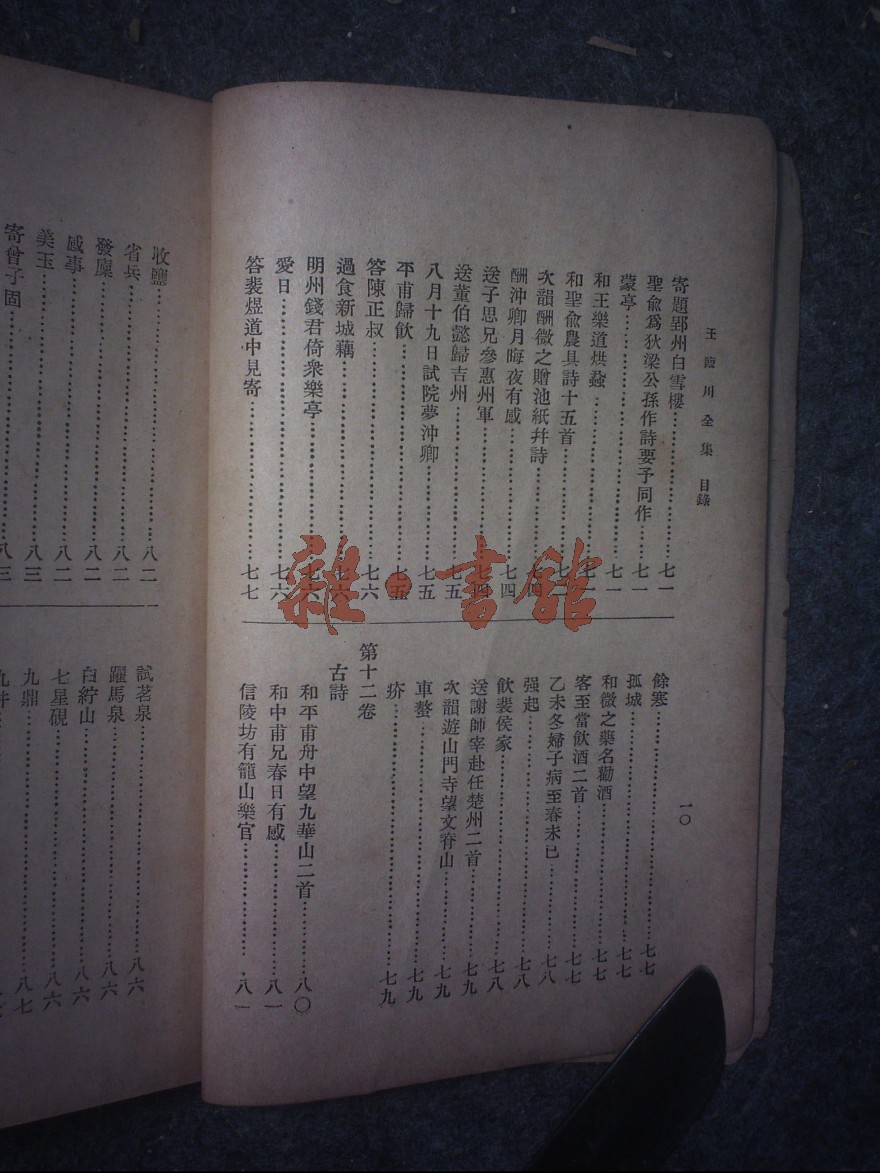 王臨川全集 目錄
一〇
寄題郢州白雪樓……七一
聖俞爲狄梁公孫作詩要予同作……七一
蒙亭……七一
和王樂道烘蝨……七一
和聖俞農具詩十五首……七一
次韻酬微之贈池紙幷詩……七四
酬沖卿月晦夜有感……七四
送子思兄參惠州軍……七四
送董伯懿歸吉州……七五
八月十九日試院夢沖卿……七五
平甫歸飲……七五
答陳正叔……七六
過食新城藕……七六
明州錢君倚衆樂亭……七六
愛日……七六
答裴煜道中見寄……七七
餘寒……七七
孤城……七七
和微之藥名勸酒……七七
客至當飲酒二首……七七
乙未冬婦子病至春未已……七八
强起……七八
飲裴侯家……七八
送謝師宰赴任楚州二首……七九
次韻遊山門寺望文脊山……七九
車螯……七九
疥……七九
第十二卷
古詩
和平甫舟中望九華山二首……八〇
和中甫兄春日有感……八一
信陵坊有籠山樂官……八一
收鹽……八二
省兵……八二
發廩……八二
感事……八二
美玉……八三
寄曾子固……八三
試茗泉……八六
躍馬泉……八六
白紵山……八六
七星硯……八六
九鼎……八七
九井
雜·書館